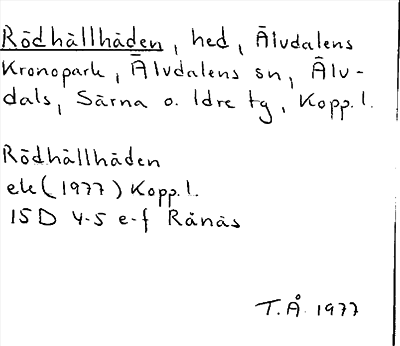 Rödhällhäden, hed, Älvdalens
Kronopark, Älvdalens sn, Älv-
dals, Särna o. Idre tg, Kopp.l.
Rödhällhäden
ek (1977) Kopp.l.
15D 4-5 e-f Rånäs
T.Å. 1977